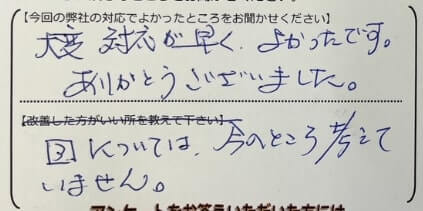 【今回の弊社の対応でよかったところをお聞かせください】
大変 対応が早く、よかったです。
ありがとうございました。
【改善した方がいい所を教えて下さい】
については、今のところ考えて
いません。
アンケートをお答えいただいた方には